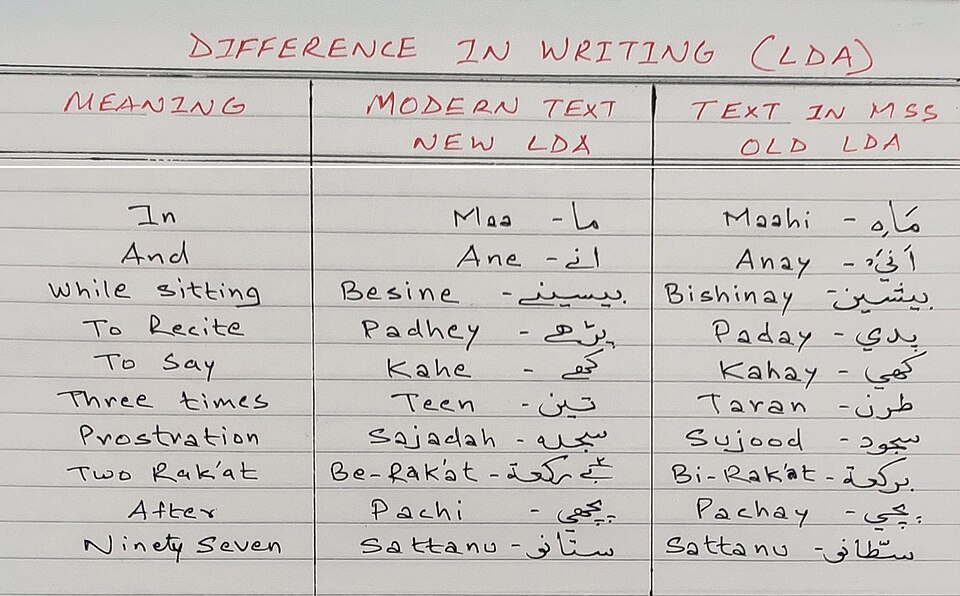 DIFFERENCE IN WRITING (LDA)
MEANING MODERN TEXT NEW LDA TEXT IN MSS OLD LDA
In Maa - ما Maahi - مَاہِ
And Ane - انے Anay - اَنيْ
While sitting Besine - بيسينے Bishinay - بيشين
To Recite Padhey - پڑھے Paday - پدي
To Say Kahe - کھے Kahay - کھي
Three times Teen - تين Taran - طرن
Prostration Sajadah - سجده Sujood - سجود
Two Rak'at Be-Rak'at - بے ركعة Bi-Rak'at - بركعة
After Pachi - پچھي Pachay - پچي
Ninety Seven Sattanu - ستانو Sattanu - سطّانو